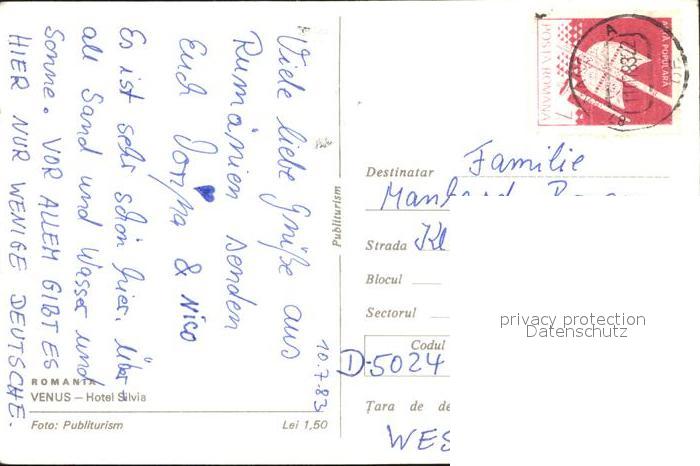 Viele liebe Grüße aus
Rumänien senden
Euch & Nico
Es ist sehr schön hier. Über-
all Sand und Wasser und
Sonne. VOR ALLEM GIBT ES
HIER NUR WENIGE DEUTSCHE.
10.7.83
ROMANIA
VENUS – Hotel Silvia
Foto: Publiturism
Lei 1,50
Publiturism
POSTA ROMANA
ARTĂ POPULARĂ
7
Destinatar Familie
Strada Kl
Blocul
Sectorul
Codul
D-5024
Țara de de
WES
privacy protection
Datenschutz